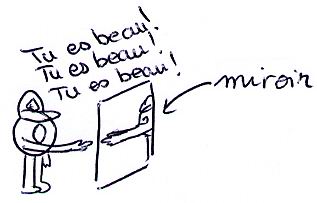 Tu es beau!
Tu es beau!
Tu es beau!
miroir